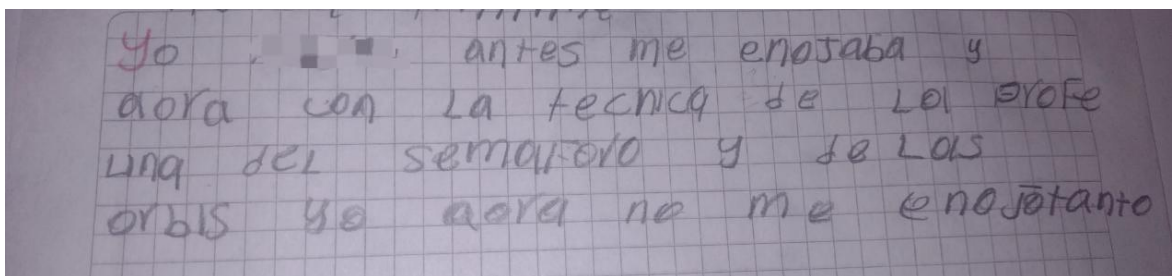 Yo antes me enojaba y
aora con La tecnica de La profe
una del semaforo y de Las
orbis yo aora no me enojotanto